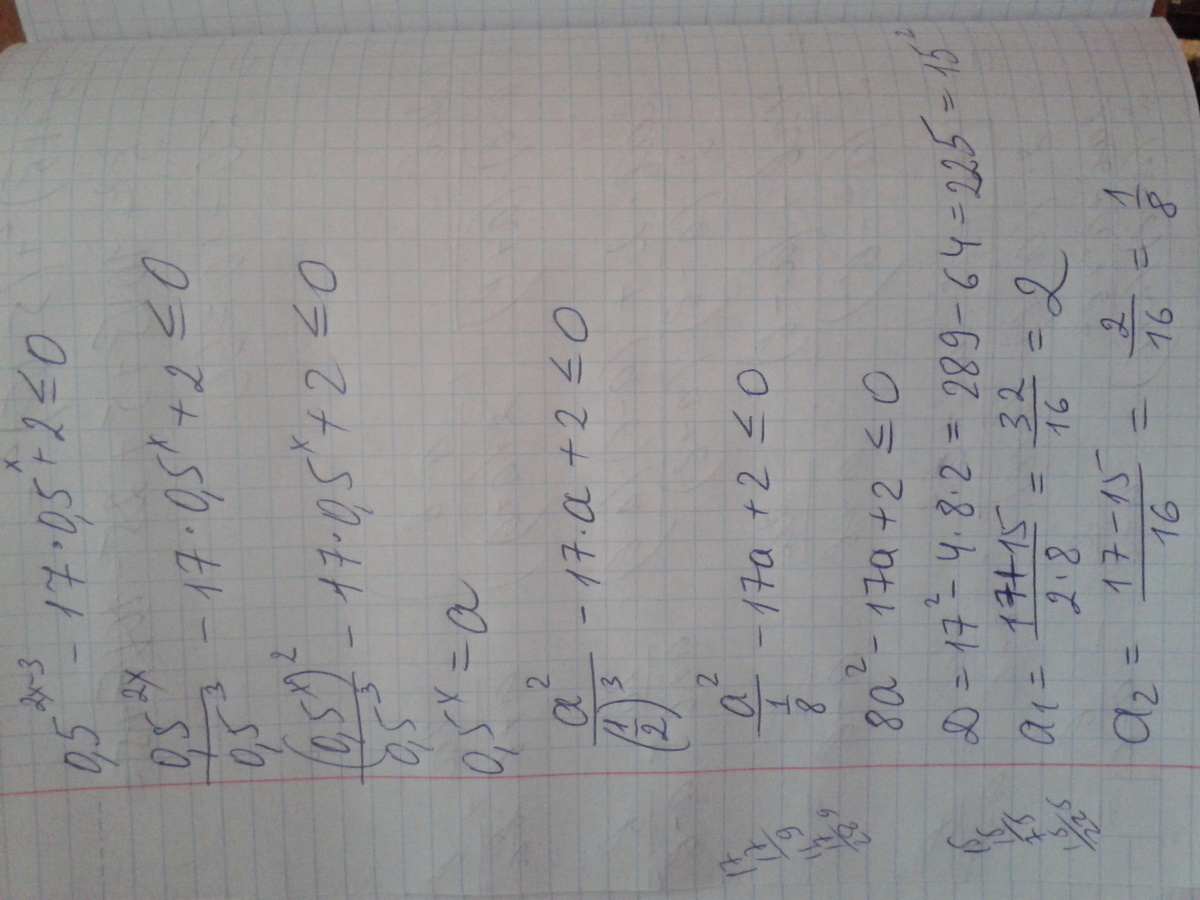 0,5^{2x-3} - 17·0,5^x + 2 ≤ 0
0,5^{2x}/0,5^3 - 17·0,5^x + 2 ≤ 0
(0,5^x)^2/0,5^3 - 17·0,5^x + 2 ≤ 0
0,5^x = a
a^2/(1/2)^3 - 17·a + 2 ≤ 0
a^2/(1/8) - 17a + 2 ≤ 0
8a^2 - 17a + 2 ≤ 0
D = 17^2 - 4·8·2 = 289 - 64 = 225 = 15^2
a1 = (17+15)/(2·8) = 32/16 = 2
a2 = (17-15)/16 = 2/16 = 1/8